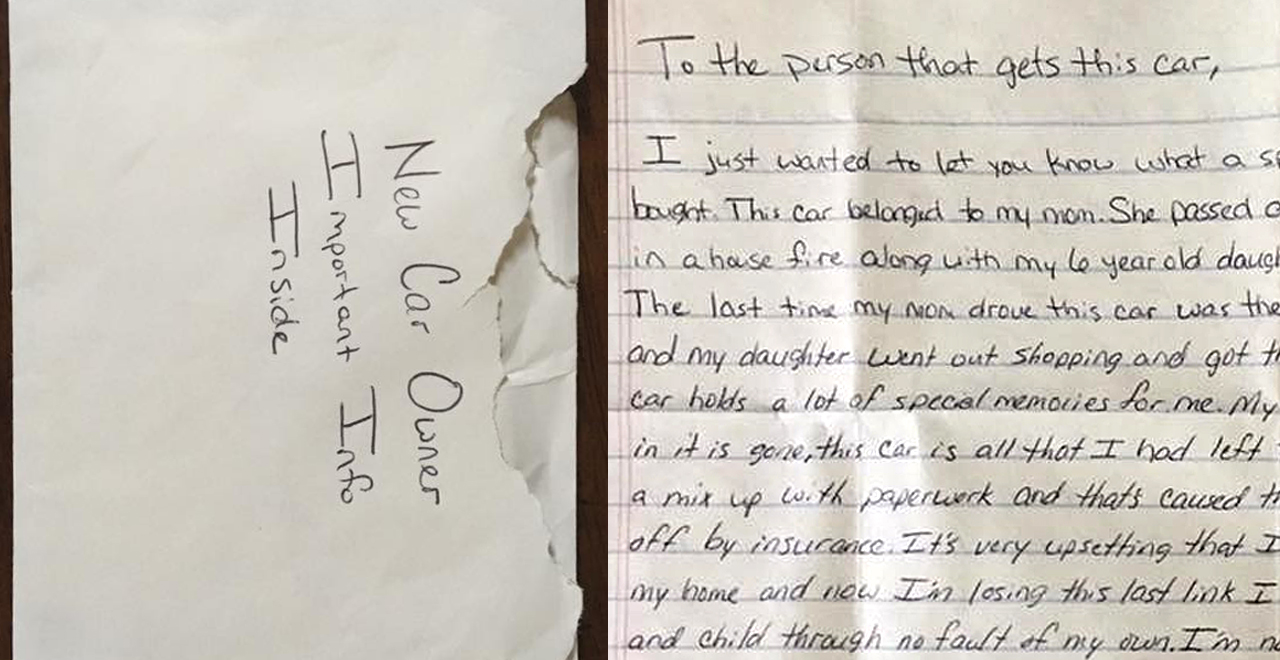 New Car Owner
Important Info
Inside
To the person that gets this car,
I just wanted to let you know what a
bought. This car belonged to my mom. She passed
in a house fire along with my 6 year old
The last time my mom drove this car was the
and my daughter went out shopping and got
car holds a lot of special memories for me. My
in it is gone, this car is all that I had left
a mix up with paperwork and thats caused
off by insurance. It's very upsetting that I
my home and now I'm losing this last link I
and child through no fault of my own. I'm